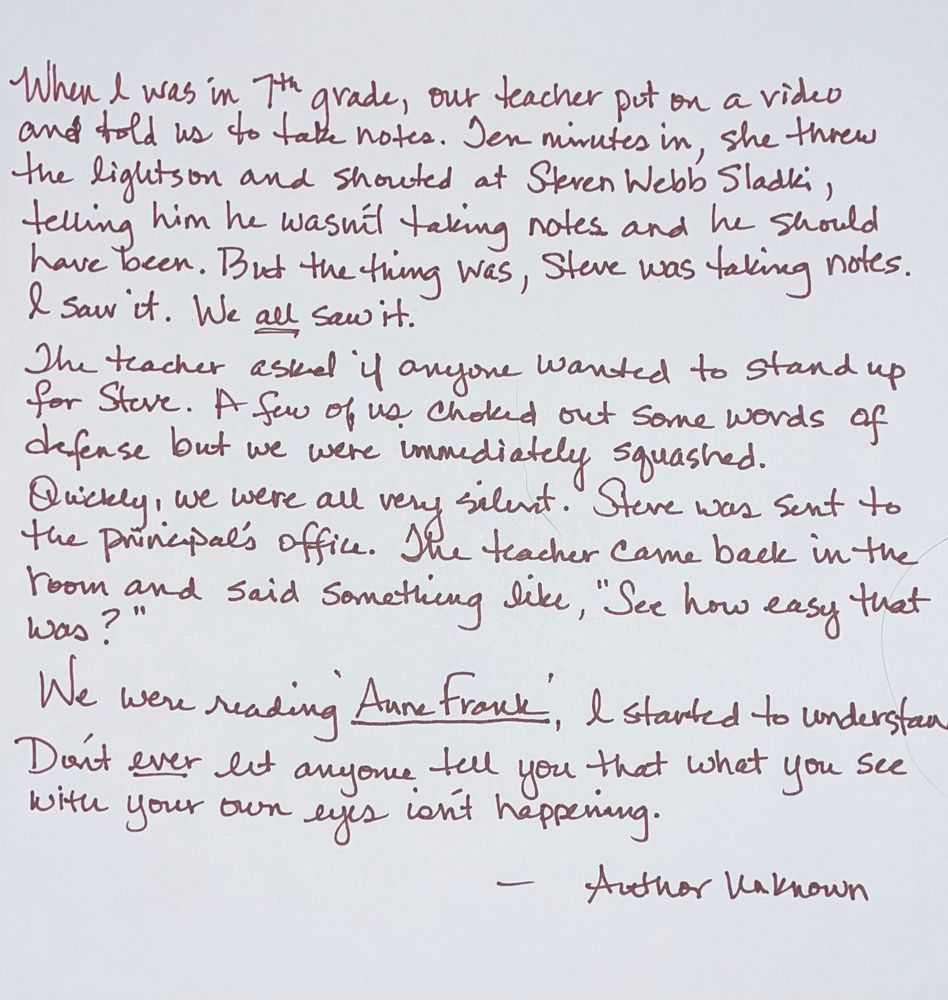 When I was in 7th grade, our teacher put on a video
and told us to take notes. Ten minutes in, she threw
the lights on and shouted at Steven Webb Sladki,
telling him he wasn't taking notes and he should
have been. But the thing was, Steve was taking notes.
I saw it. We all saw it.
The teacher asked if anyone wanted to stand up
for Steve. A few of us choked out some words of
defense but we were immediately squashed.
Quickly, we were all very silent. Steve was sent to
the principal's office. The teacher came back in the
room and said something like, "See how easy that
was?"
We were reading 'Anne Frank', I started to understan
Don't ever let anyone tell you that what you see
with your own eyes isn't happening.
— Author Unknown